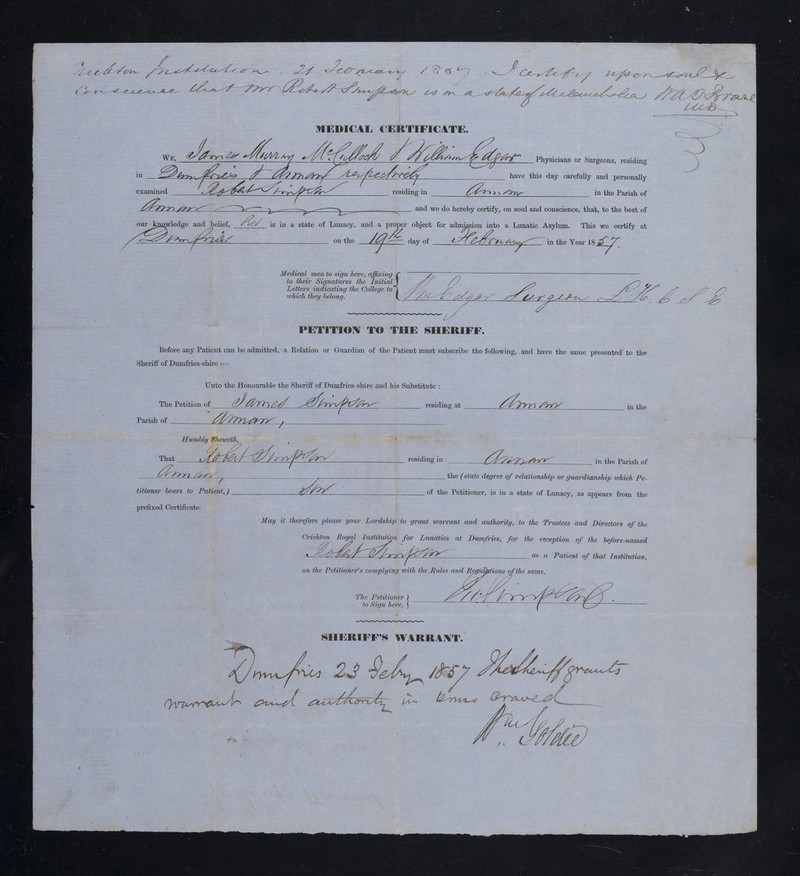 Crichton Institution. 21 February 1857. I certify upon soul &
conscience that Mr Robert Simpson is in a state of Melancholia W A F Browne
MD
MEDICAL CERTIFICATE.
We, James Murray McCulloch & William Edgar Physicians or Surgeons, residing
in Dumfries & Annan respectively have this day carefully and personally
examined Robert Simpson residing in Annan in the Parish of
Annan and we do hereby certify, on soul and conscience, that, to the best of
our knowledge and belief, he is in a state of Lunacy, and a proper object for admission into a Lunatic Asylum. This we certify at
Dumfries on the 19th day of February in the Year 1857.
Medical men to sign here, affixing
to their Signatures the Initial
Letters indicating the College to
which they belong.
Wm Edgar Surgeon L. R. C S E
PETITION TO THE SHERIFF.
Before any Patient can be admitted, a Relation or Guardian of the Patient must subscribe the following, and have the same presented to the
Sheriff of Dumfries-shire :—
Unto the Honourable the Sheriff of Dumfries-shire and his Substitute :
The Petition of James Simpson residing at Annan in the
Parish of Annan,
Humbly Sheweth,
That Robert Simpson residing in Annan in the Parish of
Annan, the (state degree of relationship or guardianship which Pe-
titioner bears to Patient,) Son of the Petitioner, is in a state of Lunacy, as appears from the
prefixed Certificate.
May it therefore please your Lordship to grant warrant and authority, to the Trustees and Directors of the
Crichton Royal Institution for Lunatics at Dumfries, for the reception of the before-named
Robert Simpson as a Patient of that Institution,
on the Petitioner's complying with the Rules and Regulations of the same.
The Petitioner
to Sign here.
Simpson.
SHERIFF'S WARRANT.
Dumfries 23 Feby 1857 The Sheriff grants
warrant and authority in terms craved
Wm Goldie